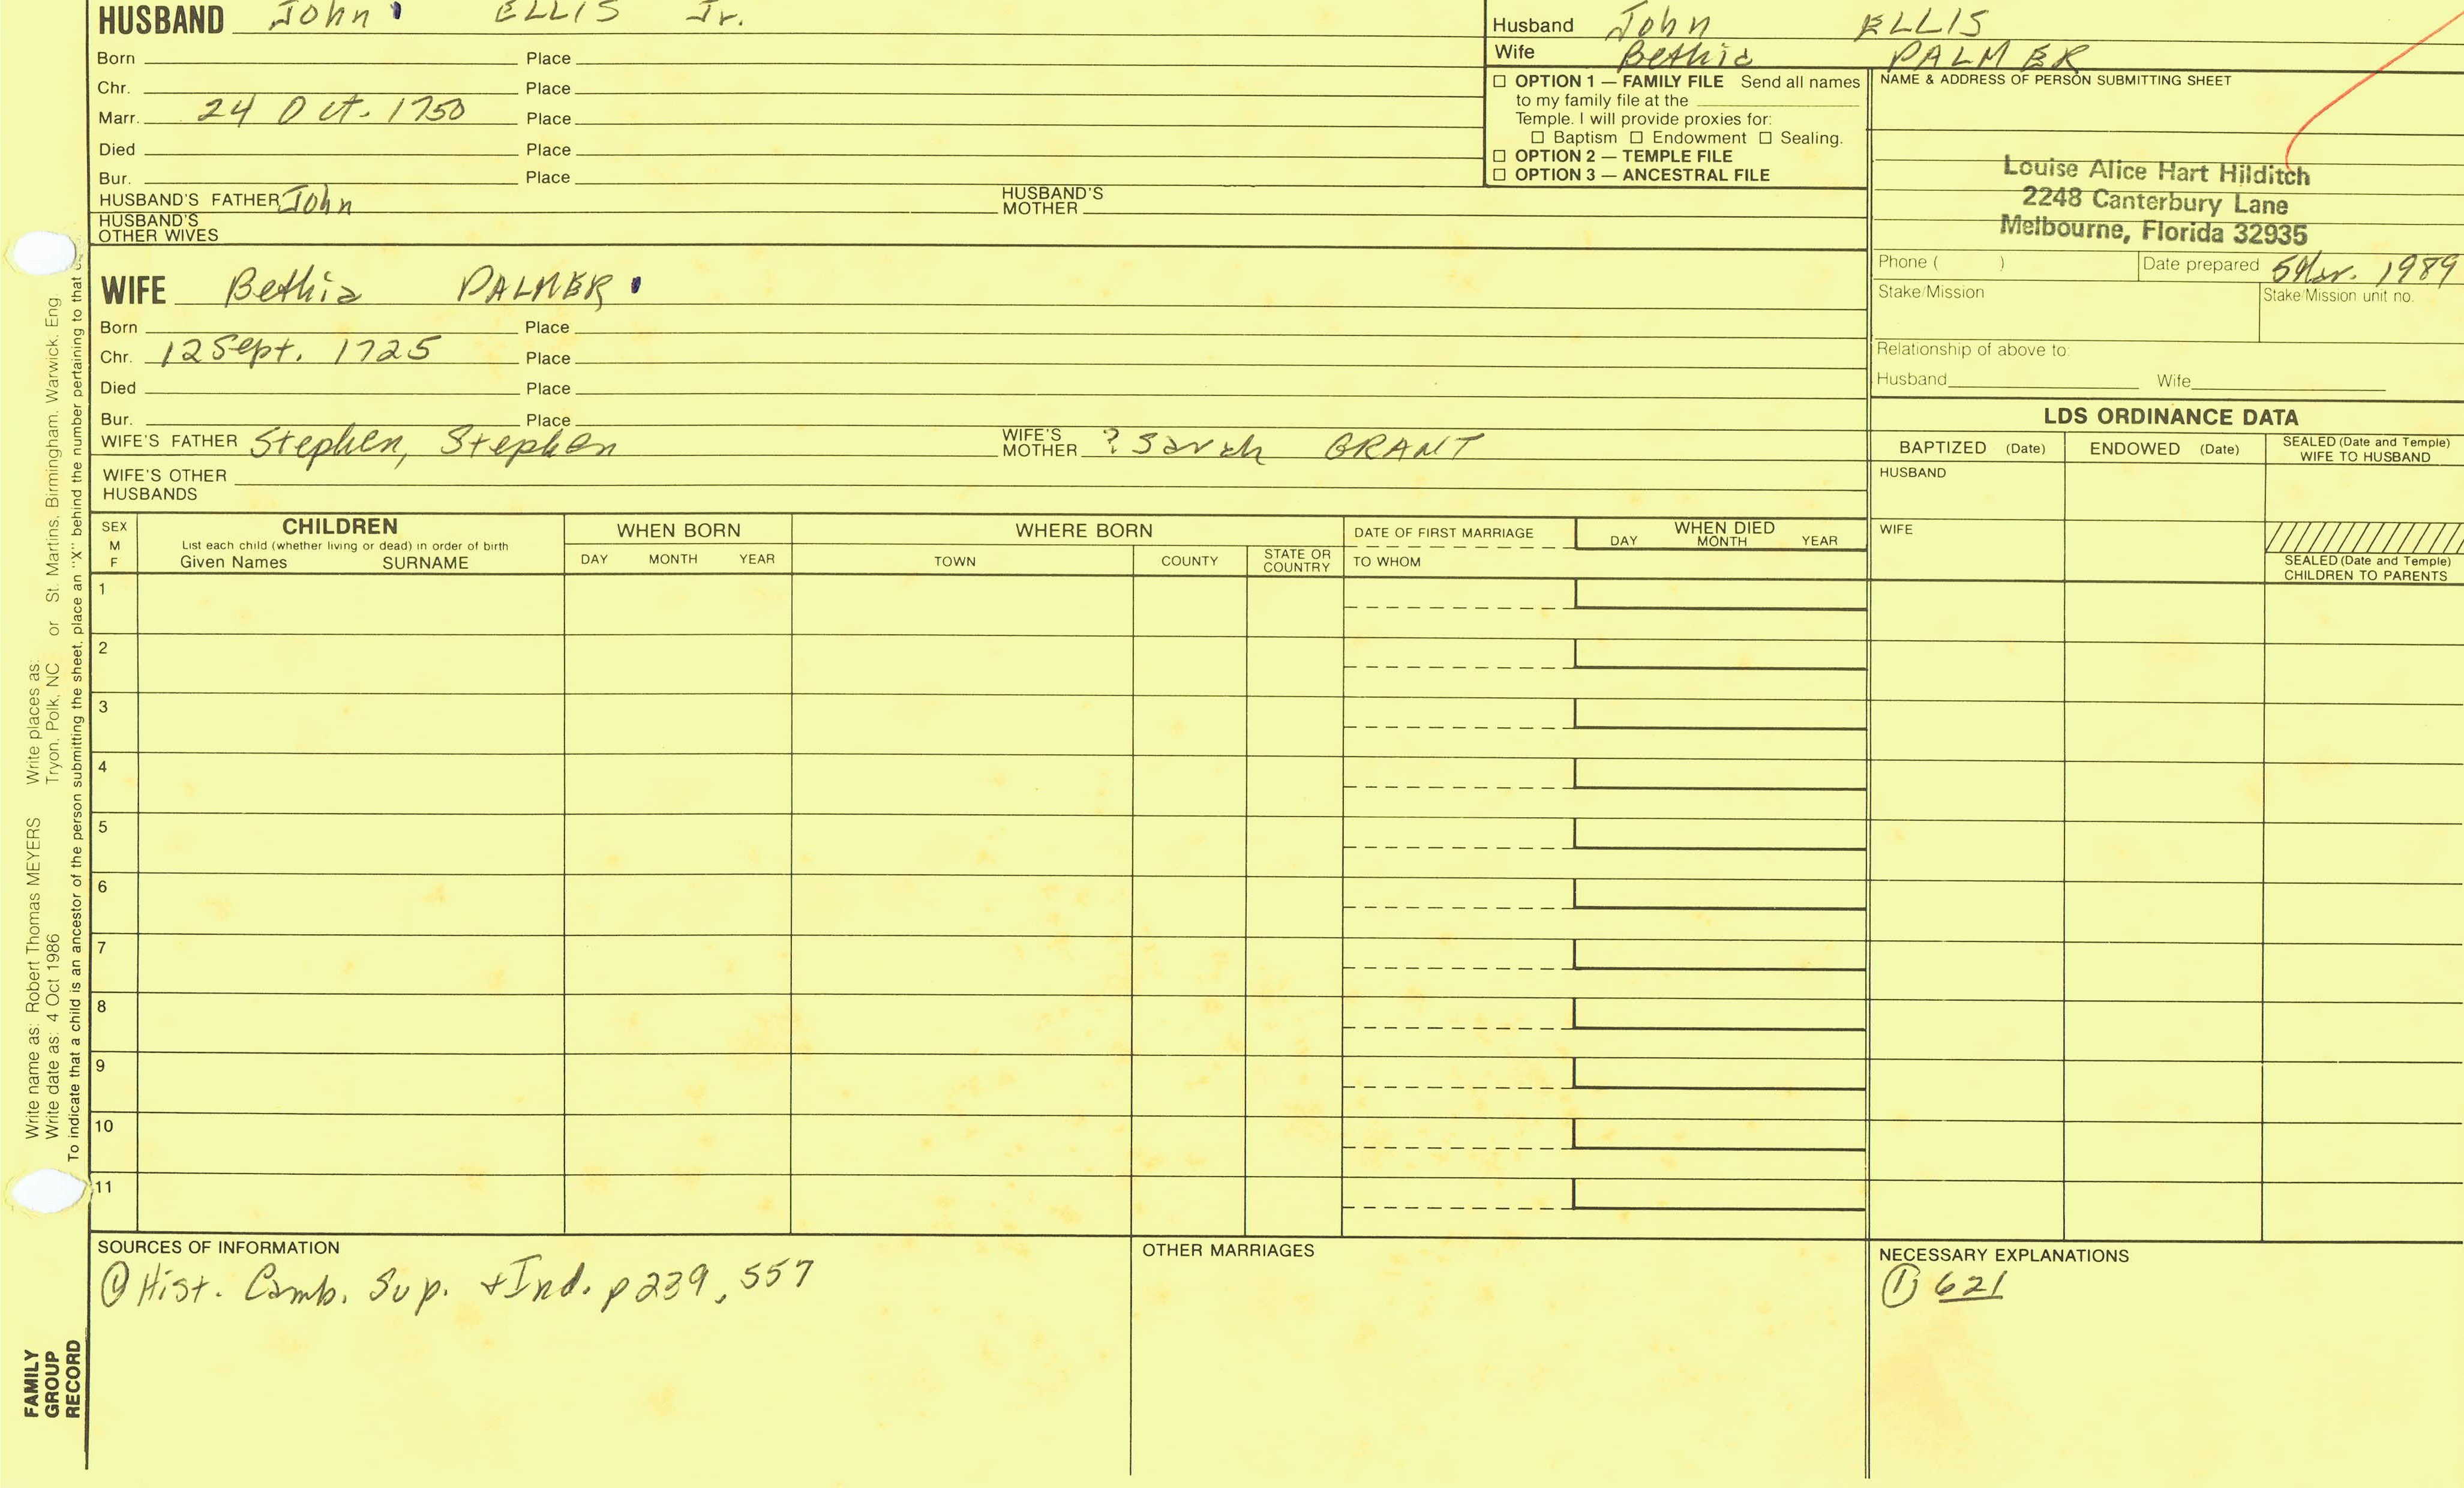 HUSBAND John ELLIS Jr.
Born Place
Chr. Place
Marr. 24 Oct. 1750 Place
Died Place
Bur. Place
HUSBAND'S FATHER John HUSBAND'S MOTHER
HUSBAND'S OTHER WIVES
Husband John ELLIS
Wife Bethia PALMER
☐ OPTION 1 — FAMILY FILE Send all names
to my family file at the
Temple. I will provide proxies for:
☐ Baptism ☐ Endowment ☐ Sealing.
☐ OPTION 2 — TEMPLE FILE
☐ OPTION 3 — ANCESTRAL FILE
NAME & ADDRESS OF PERSON SUBMITTING SHEET
Louise Alice Hart Hilditch
2248 Canterbury Lane
Melbourne, Florida 32935
Phone ( ) Date prepared 5 Mar. 1989
Stake/Mission Stake/Mission unit no.
Relationship of above to:
Husband Wife
WIFE Bethia PALMER
Born Place
Chr. 12 Sept. 1725 Place
Died Place
Bur. Place
WIFE'S FATHER Stephen, Stephen WIFE'S MOTHER ? Sarah GRANT
WIFE'S OTHER HUSBANDS
LDS ORDINANCE DATA
BAPTIZED (Date) ENDOWED (Date) SEALED (Date and Temple) WIFE TO HUSBAND
HUSBAND
WIFE
SEALED (Date and Temple) CHILDREN TO PARENTS
SEX M F
CHILDREN
List each child (whether living or dead) in order of birth
Given Names SURNAME
WHEN BORN
DAY MONTH YEAR
WHERE BORN
TOWN COUNTY STATE OR COUNTRY
DATE OF FIRST MARRIAGE
TO WHOM
WHEN DIED
DAY MONTH YEAR
1
2
3
4
5
6
7
8
9
10
11
SOURCES OF INFORMATION
① Hist. Camb. Sup. + Ind. p 239, 557
OTHER MARRIAGES
NECESSARY EXPLANATIONS
① 621
Write name as: Robert Thomas MEYERS Write places as:
Write date as: 4 Oct 1986 Tryon, Polk, NC or St. Martins, Birmingham, Warwick, Eng.
To indicate that a child is an ancestor of the person submitting the sheet, place an "X" behind the number pertaining to that
FAMILY
GROUP
RECORD